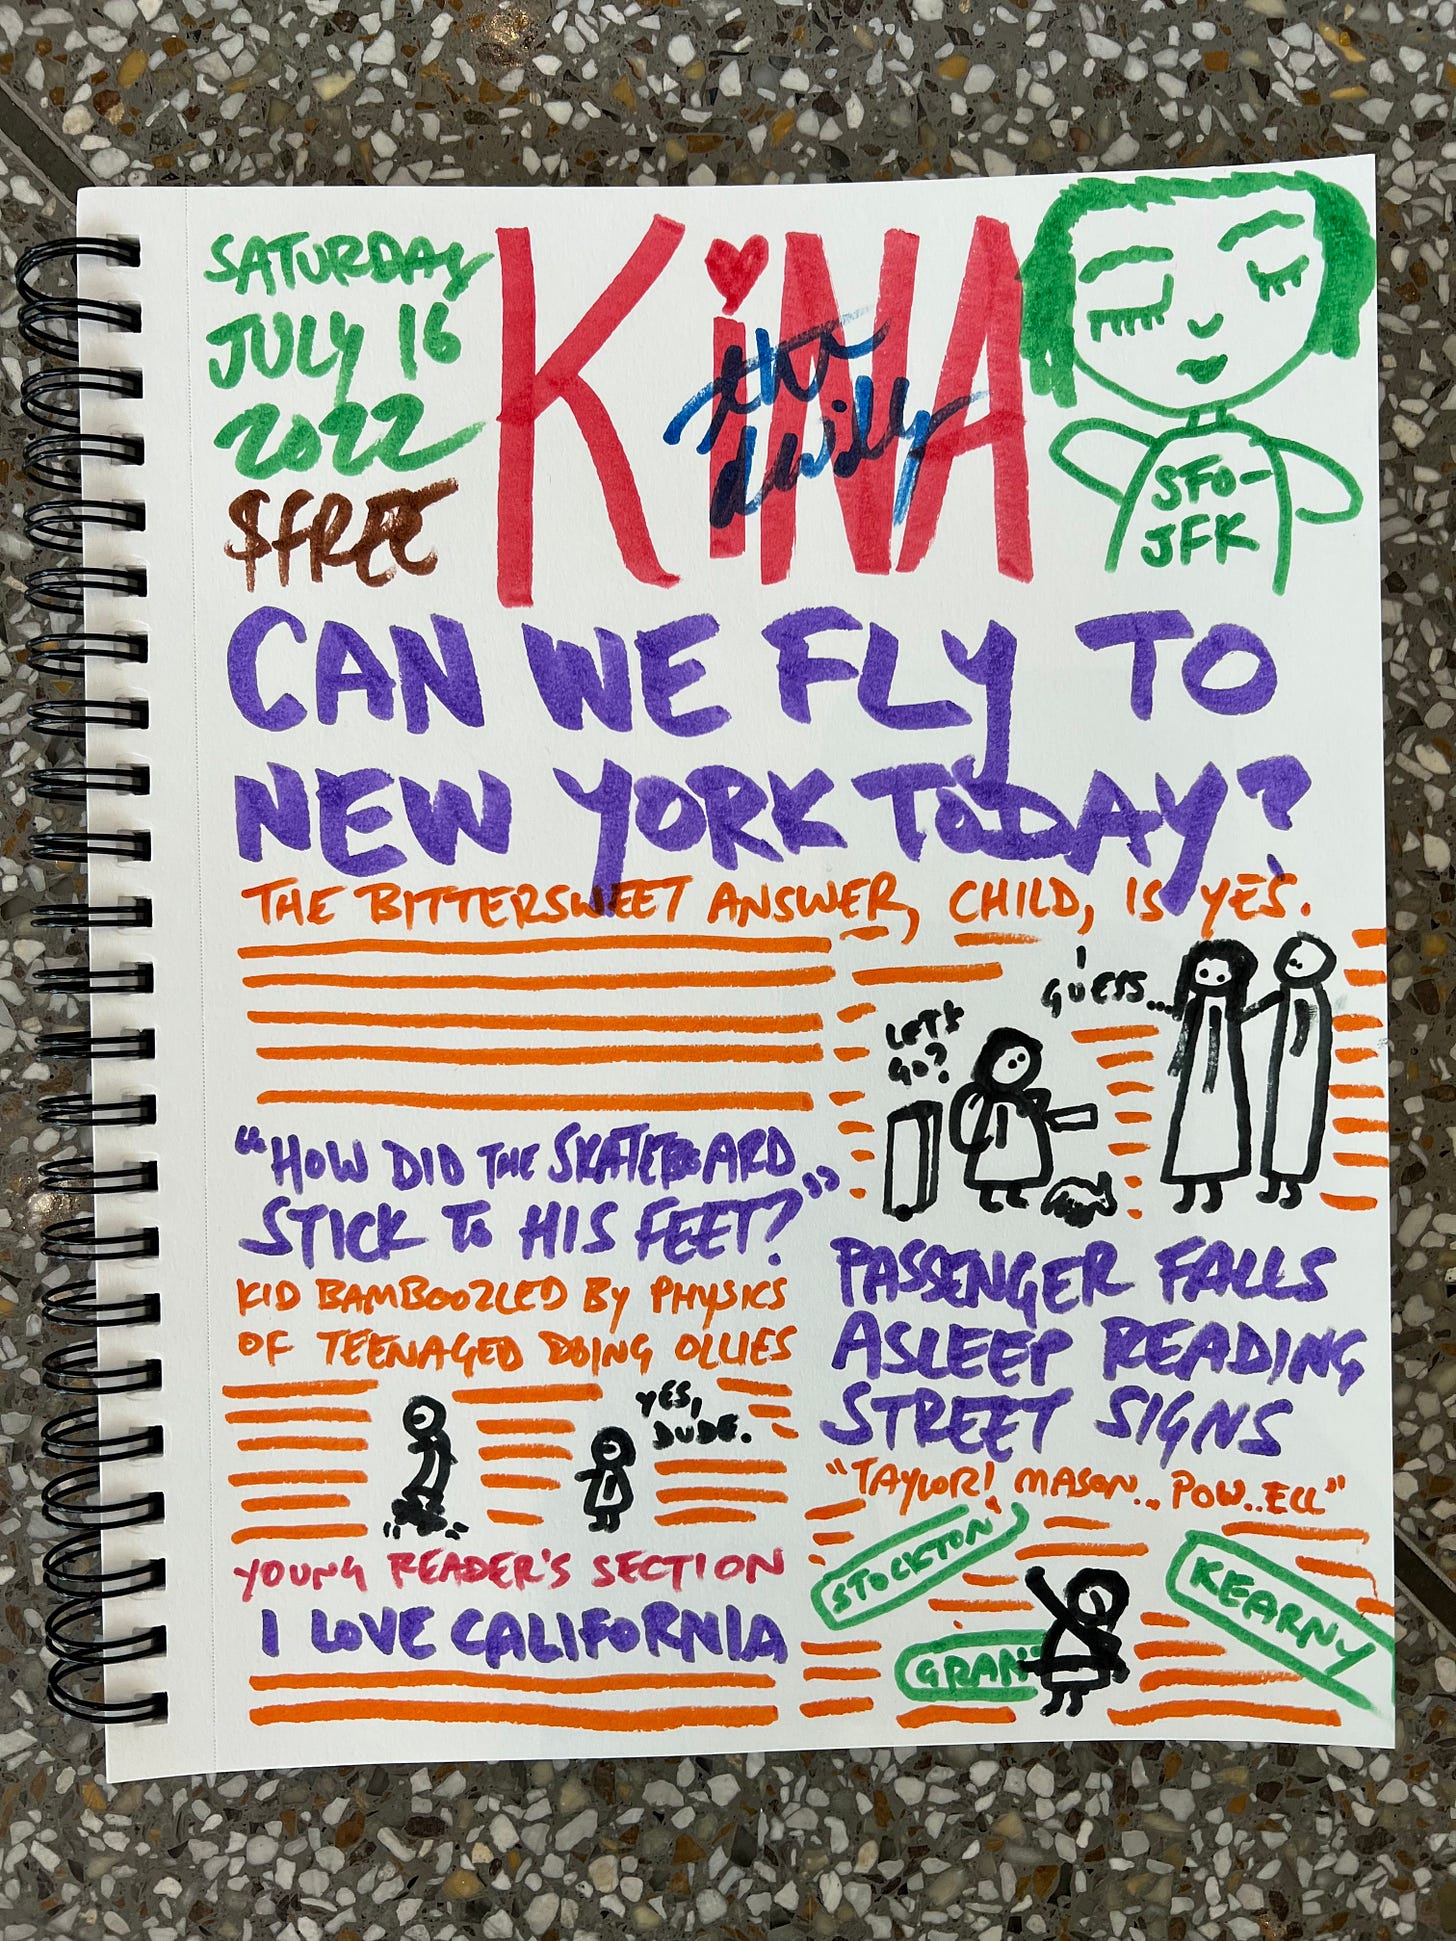 SATURDAY
JULY 16
2022
$FREE
KiNA
the
daily
SFO-
JFK
CAN WE FLY TO
NEW YORK TODAY?
THE BITTERSWEET ANSWER, CHILD, IS YES.
I
GUESS...
LET'S
GO?
"HOW DID THE SKATEBOARD
STICK TO HIS FEET?"
KID BAMBOOZLED BY PHYSICS
OF TEENAGED DOING OLLIES
YES,
DUDE.
YOUNG READER'S SECTION
I LOVE CALIFORNIA
PASSENGER FALLS
ASLEEP READING
STREET SIGNS
"TAYLOR! MASON... POW..ELL"
STOCKTON
KEARNY
GRANT